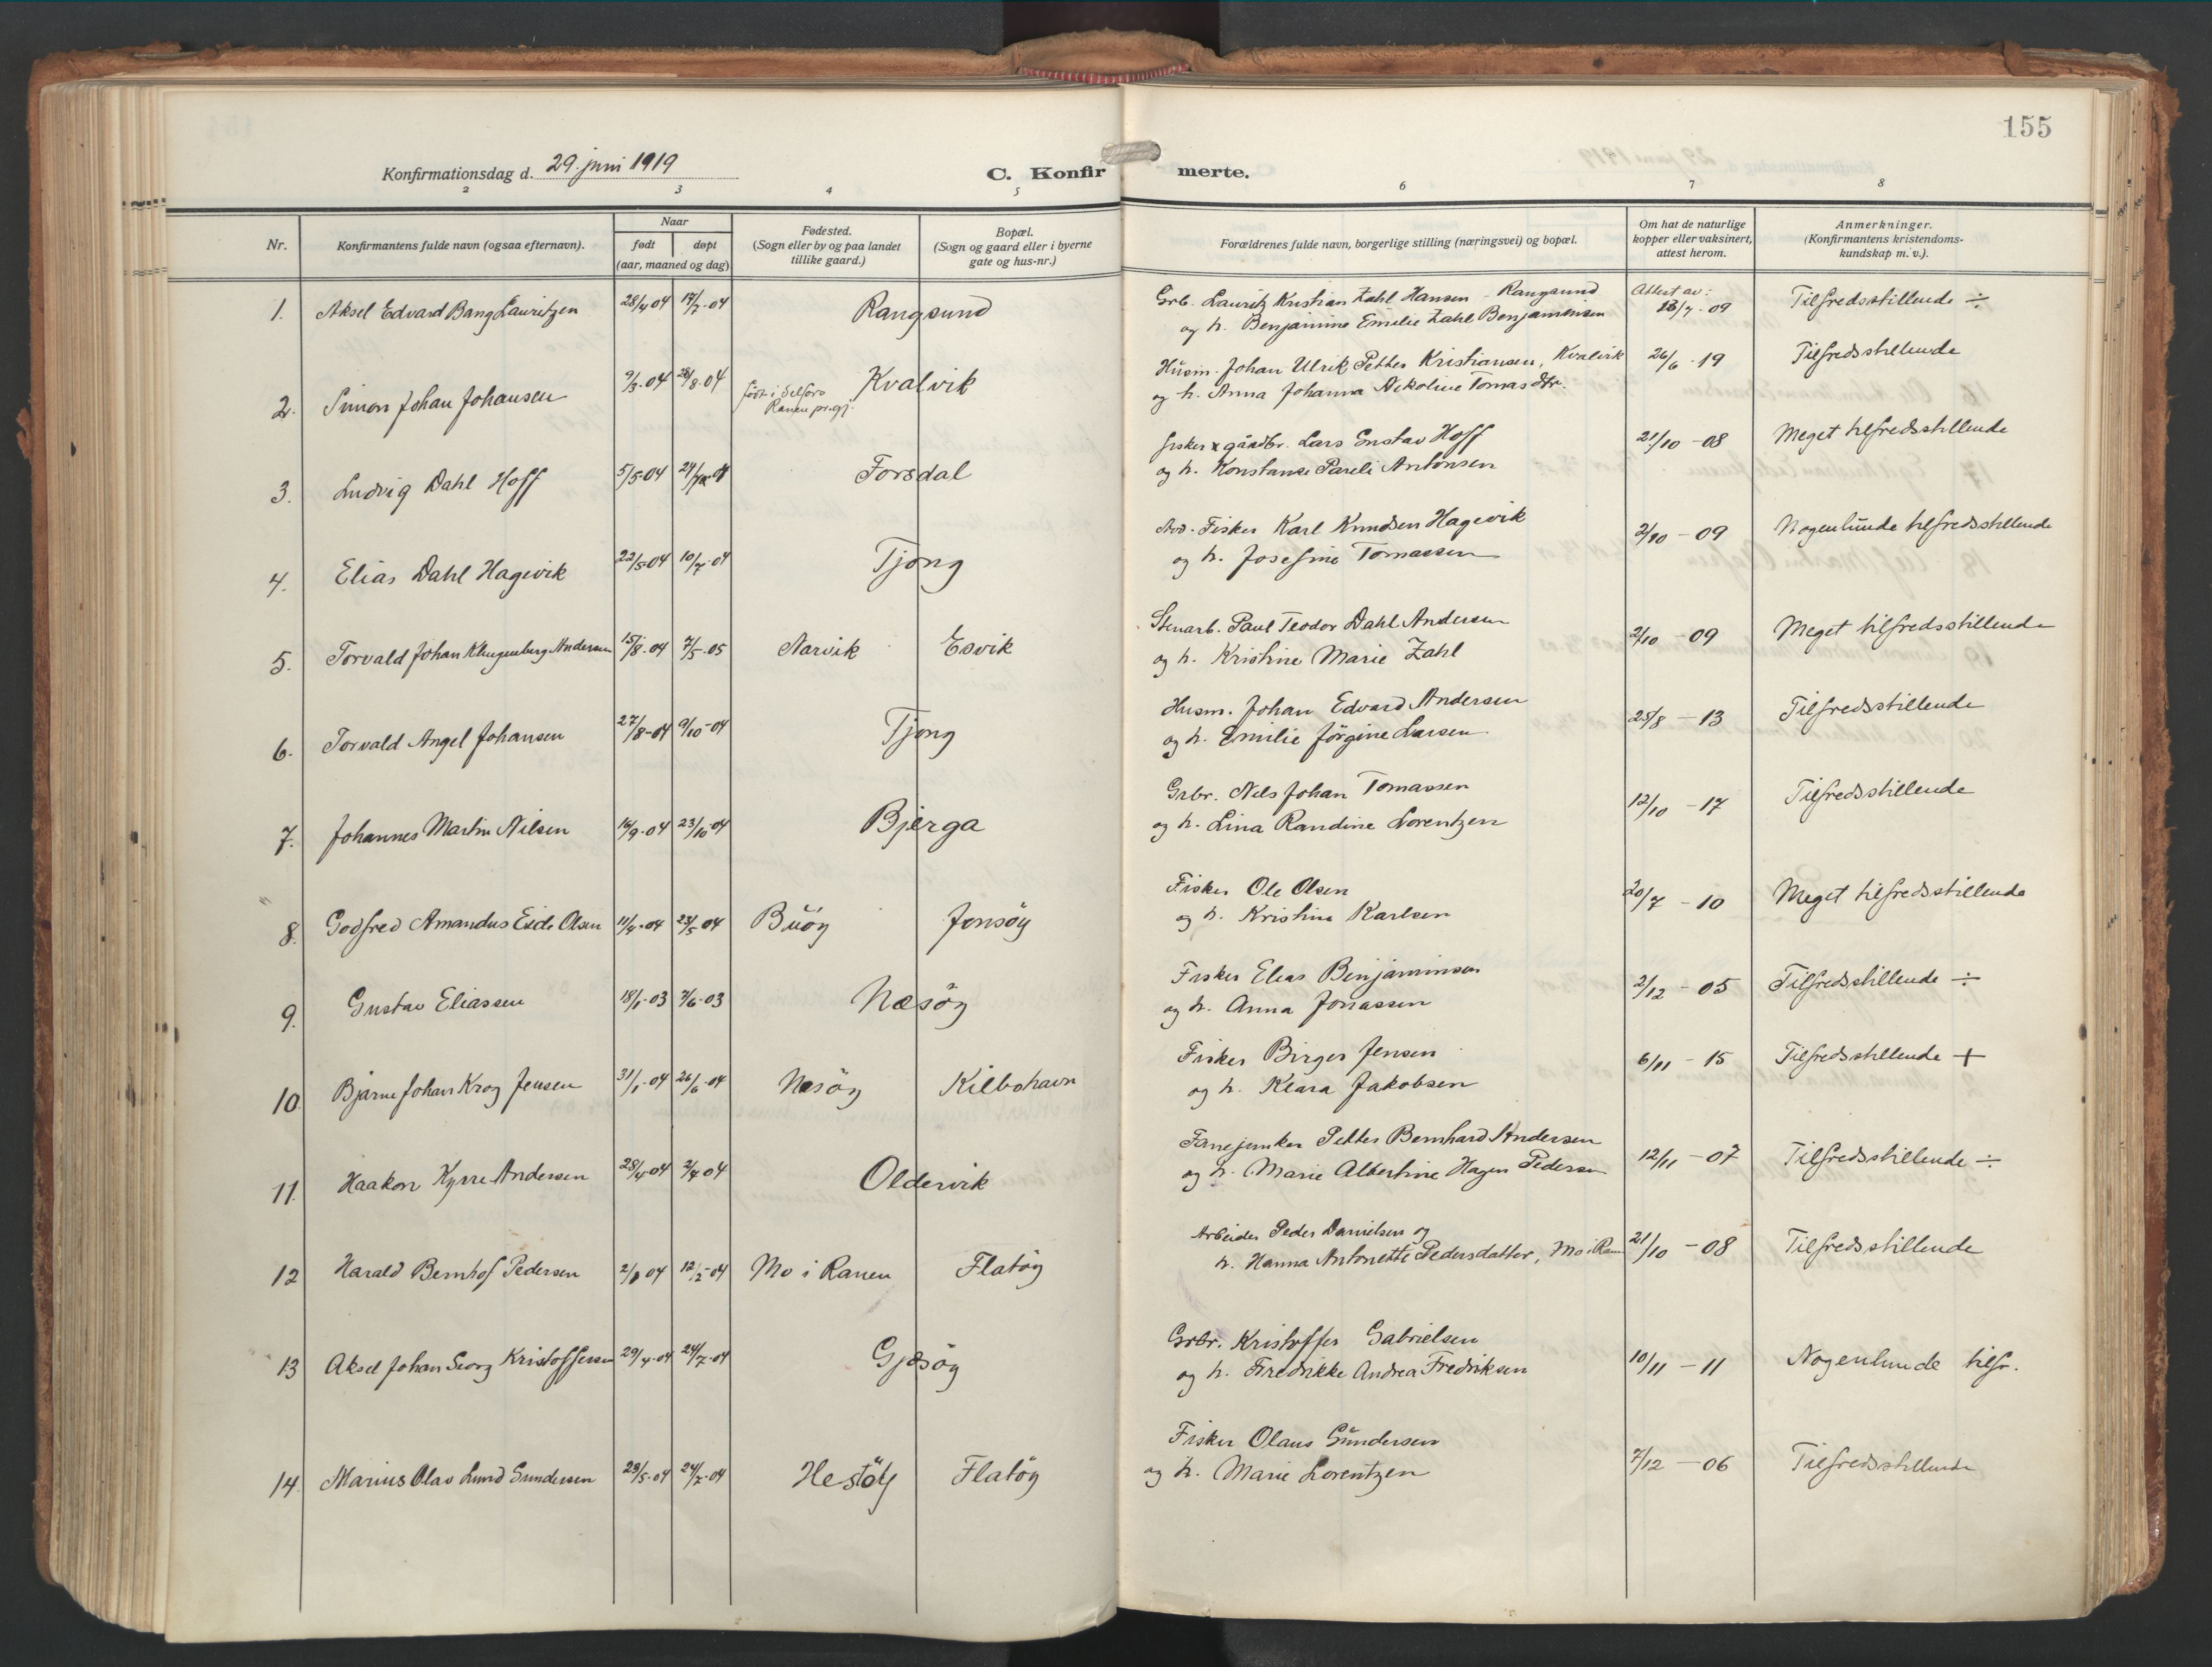 155
Konfirmationsdag d. 29. juni 1919
C. Konfirmerte.
2 3 4 5 6 7 8
Nr.
Konfirmantens fulde navn (ogsaa efternavn).
Naar
født døpt
(aar, maaned og dag)
Fødested.
(Sogn eller by og paa landet
tillike gaard.)
Bopæl.
(Sogn og gaard eller i byerne
gate og hus-nr.)
Forældrenes fulde navn, borgerlige stilling (næringsvei) og bopæl.
Om hat de naturlige
kopper eller vaksinert,
attest herom.
Anmerkninger.
(Konfirmantens kristendoms-
kundskap m. v.).
1. Aksel Edvard Bang Lauritzen 28/4 04 17/7-04 Rangsund
Grb. Lauritz Kristian Zahl Hansen - Rangsund
og h. Benjamine Emilie Zahl Benjaminsen
Attest av:
13/7-09 Tilfredsstillende ÷
2. Simon Johan Johansen 9/3-04 28/8-04 født i Selfors
Ranen pr.gj. Kvalvik
Husm. Johan Ulrik Petter Kristiansen, Kvalvik
og h. Anna Johanna Nikoline Tomasdtr.
26/6-19 Tilfredsstillende
3. Ludvig Dahl Hoff 5/5-04 Forsdal
Fisker & gårdbr. Lars Gustav Hoff
og h. Konstanse Pareli Antonsen
21/10-08 Meget tilfredsstillende
4. Elias Dahl Hagevik 22/5-04 10/7-04 Tjong
Fisker Karl Knudsen Hagevik
og h. Josefine Tomassen
2/10-09 Nogenlunde tilfredsstillende
5. Torvald Johan Klingenberg Andersen 15/8-04 7/5-05 Narvik Esvik
Stenarb. Paul Teodor Dahl Andersen
og h. Kristine Marie Zahl
2/10-09 Meget tilfredsstillende
6. Torvald Angel Johansen 27/8-04 9/10-04 Tjong
Husm. Johan Edvard Andersen
og h. Emilie Jörgine Larsen
25/8-13 Tilfredsstillende
7. Johannes Martin Nilsen 16/9-04 23/10-04 Bjerga
Grbr. Nils Johan Tomassen
og h. Lina Randine Lorentzen
12/10-17 Tilfredsstillende
8. Godfred Amandus Eide Olsen 11/4-04 23/5-04 Buöy Jonsöy
Fisker Ole Olsen
og h. Kristine Karlsen
20/7-10 Meget tilfredsstillende
9. Gustav Eliassen 18/1-03 7/6-03 Næsöy
Fisker Elias Benjaminsen
og h. Anna Jonassen
2/12-05 Tilfredsstillende ÷
10. Bjarne Johan Krog Jensen 31/1-04 26/6-04 Næsöy Kilbohavn
Fisker Birger Jensen
og h. Klara Jakobsen
6/11-15 Tilfredsstillende +
11. Haakon Kyrre Andersen 28/4-04 2/7 04 Oldervik
Fanejunker Petter Bernhard Andersen
og h. Marie Albertine Hagen Pedersen
12/11-07 Tilfredsstillende ÷
12 Harald Bernhof Pedersen 2/1 04 12/2-04 Mo i Ranen Flatöy
Arbeider Peder Danielsen og
h. Hanna Antonette Pedersdatter, Mo i Ranen
21/10-08 Tilfredsstillende
13 Aksel Johan Georg Kristoffersen 29/4-04 24/7-04 Gjæsöy
Grbr. Kristoffer Gabrielsen
og h. Fredrikke Andrea Fredriksen
10/11-11 Nogenlunde tilfr.
14. Marius Olav Lund Gundersen 23/5-04 24/7-04 Hestöy Flatöy
Fisker Olaus Gundersen
og h. Marie Lorentzen
7/12-06 Tilfredsstillende